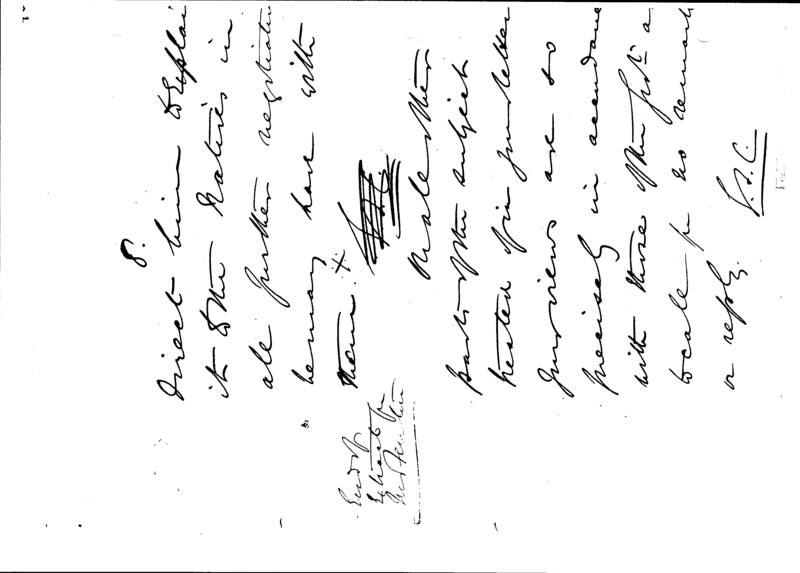 8.
direct him to explai
it to the Natives in
all further negotiation
he may have with
them. X
End of
Extract for
That other
part of the subject
treated of in your letter
your views are so
precisely in accordanc
with those of the Govt. a
to call for no remark
or reply.